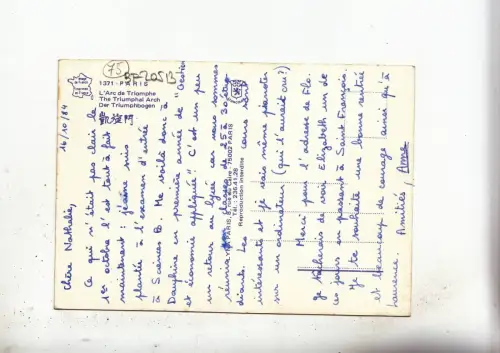 75
BF-205B
1371 - PARIS
L'Arc de Triomphe
The Triumphal Arch
Der Triumphbogen
凱旋門
16/10/84
Chère Nathalie,
Ce qui n'était pas clair le
1er octobre l'est tout à fait
maintenant : j'me suis
plantée à l'examen d'entrée
à Sciences Po. Me voilà donc à
Dauphine en première année de "Gestion
et économie appliquée". C'est un peu
un retour au lycée car nous sommes
réunis en de 25 à 30 étu-
diants. Les cours sont
intéressants et je vais même planter
sur un ordinateur (qui l'aurait cru?)
Merci pour l'adresse de Flo.
Je tâcherais de voir Elizabeth un de
ces jours en passant à Saint François.
Je te souhaite une bonne rentrée
et beaucoup de courage ainsi qu'à
Anne
Laurence. Amitiés,
75002 PARIS
Tél. : 236.41.28
Reproduction interdite